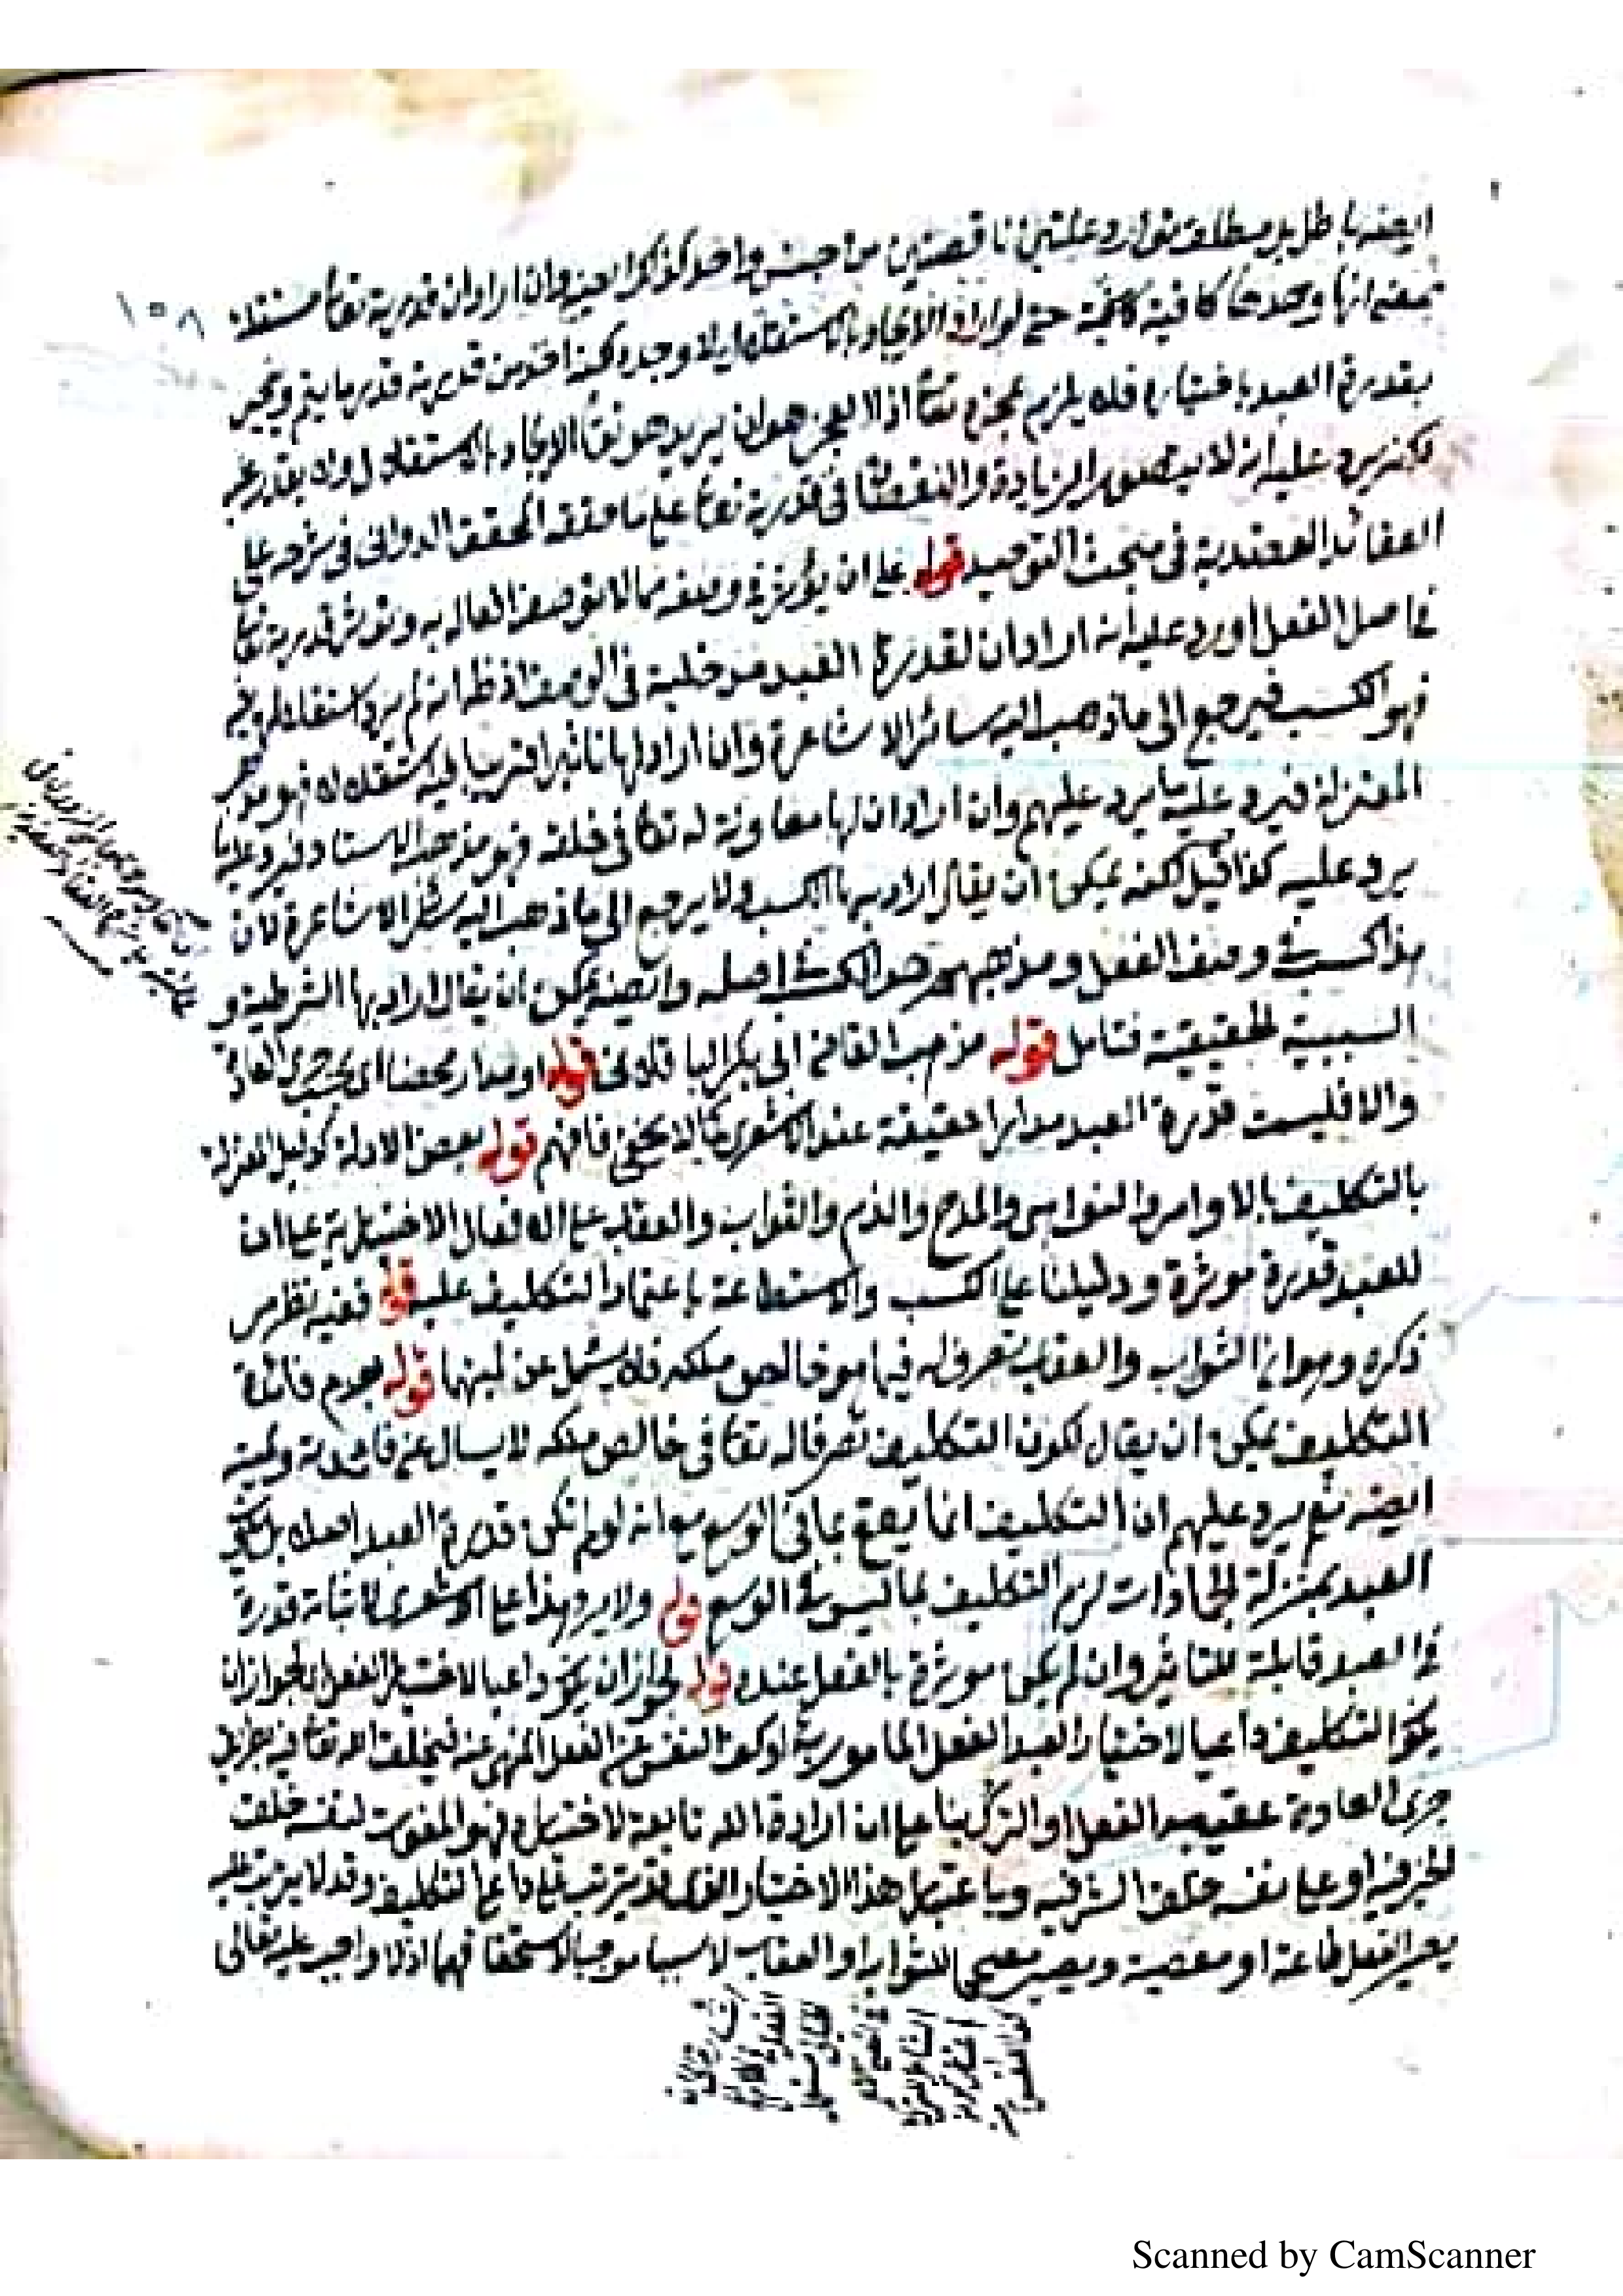 ايضا باطل بل مطلق توارد علتين ناقصتين من جنس واحد كذلك ايضا وان اراد ان قدرته تعا مستقلة
١٥٨
بمعنى انها وحدها كافية حتى لو اراد الايجاد بالاستقلال لا وجده لكنه اخذ من قدرته قدر ما يتم
بقدرة العبد باختياره فلا يلزم عجزه تعا اذ العجز هو ان يريد هو تعا الايجاد بالاستقلال ولا يقدر عليه
لكنه يرد عليه انه لا يتصور الزيادة والنقصان في قدرته تعا على ما حققه المحقق الدواني في شرحه على
العقائد العضدية في مبحث التوحيد قوله على ان يؤثر في وصفه مما لا توصف افعاله به وتؤثر قدرته تعا
في اصل الفعل اورد عليه انه اراد ان لقدرة العبد مدخلية في الوصف اذ ظ انه لم يرد استقلاله فيه
فهو الكسب فيرجع الى ما ذهب اليه سائر الاشاعرة وان اراد لها تاثيرا قريبا فيه استقلالا فهو مذهب
المعتزلة فيرد عليه ما يرد عليهم وان اراد ان لها معاونة له تعا في خلقه فهو مذهب الاستاد فيرد عليه ما
يرد عليه كذا قيل لكنه يمكن ان يقال اراد بها الكسب ولا يرجع الى ما ذهب اليه سائر الاشاعرة لان
هذا كسب في وصف الفعل ومذهبهم هو الكسب في اصله وايضا يمكن ان يقال اراد بها الشرطية و
السببية الحقيقية فتامل قوله مذهب القاضي ابي بكر الباقلاني قوله او مدار محضا اي بحسب جري العادة
والا فليست قدرة العبد مدارا حقيقة عند الاشعري كما لا يخفى فافهم قوله بعض الادلة كدليل المعتزلة
بالتكليف بالاوامر والنواهي والمدح والذم والثواب والعقاب على الافعال الاختيارية على ان
للعبد قدرة موثرة ودليلنا على الكسب والاستطاعة باعتماد التكليف عليه قوله ففيه نظر مر
ذكره وهو ان الثواب والعقاب تصرف له فيما هو خالص ملكه فلا يسئل عن لميتها قوله عدم فائدة
التكليف يمكن ان يقال لكون التكليف تصرفا له تعا في خالص ملكه لا يسال عن فائدته ولميته
ايضا نعم يرد عليهم ان التكليف انما يقع بما في الوسع مع انه لو لم تكن قدرة العبد اصلا بل يكون
العبد بمنزلة الجمادات لزم التكليف بما ليس في الوسع قوله ولا يرد هذا على الاشعري لاثباته قدرة
في العبد قابلة للتاثير وان لم يكن موثرة بالفعل عنده قوله لجواز ان يكون داعيا لاختيار الفعل اي لجواز ان
يكون التكليف داعيا لاختيار العبد الفعل المامور به او كف النفس عن الفعل المنهي عنه فيخلق الله تعا فيه بطريق
جرى العادة عقيب الفعل او الترك بناء على ان ارادة الله تابعة لاختياره فهو المفوت لنفسه خلق
الخير فيه او على نفسه خلق الشر فيه وباعتبار هذا الاختيار الذي قد يترتب على داعي التكليف وقد لا يترتب عليه
يصير الفعل طاعة او معصية ويصير مصححا للثواب او العقاب لا سببا موجبا لاستحقاقهما اذ لا واجب عليه تعالى